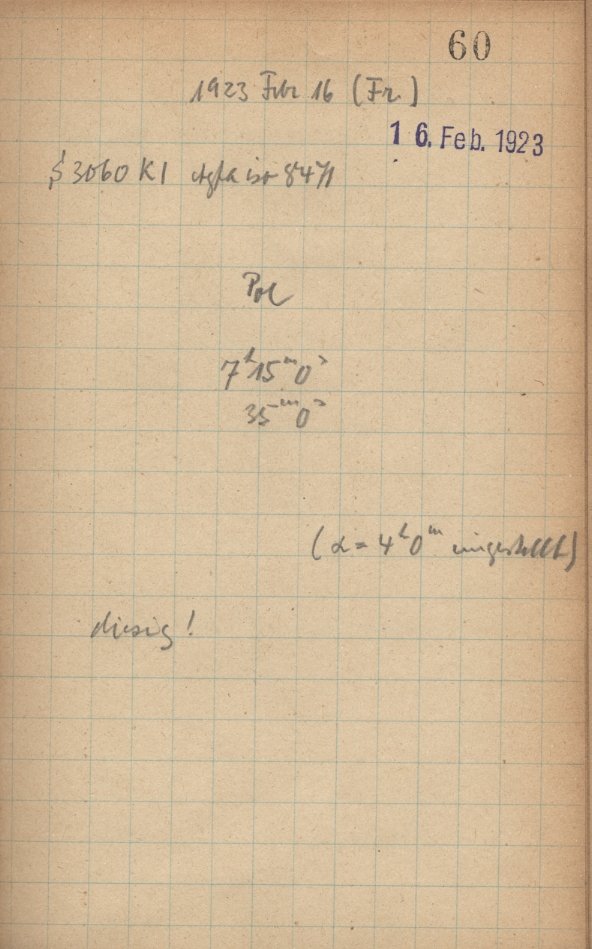 60
1923 Febr 16 (Fr.)
16. Feb. 1923
S 3060 K1 Agfa iso 8471
Pol
7ʰ 15ᵐ 0ˢ
35ᵐ 0ˢ
(α = 4ʰ 0ᵐ eingestellt)
diesig!